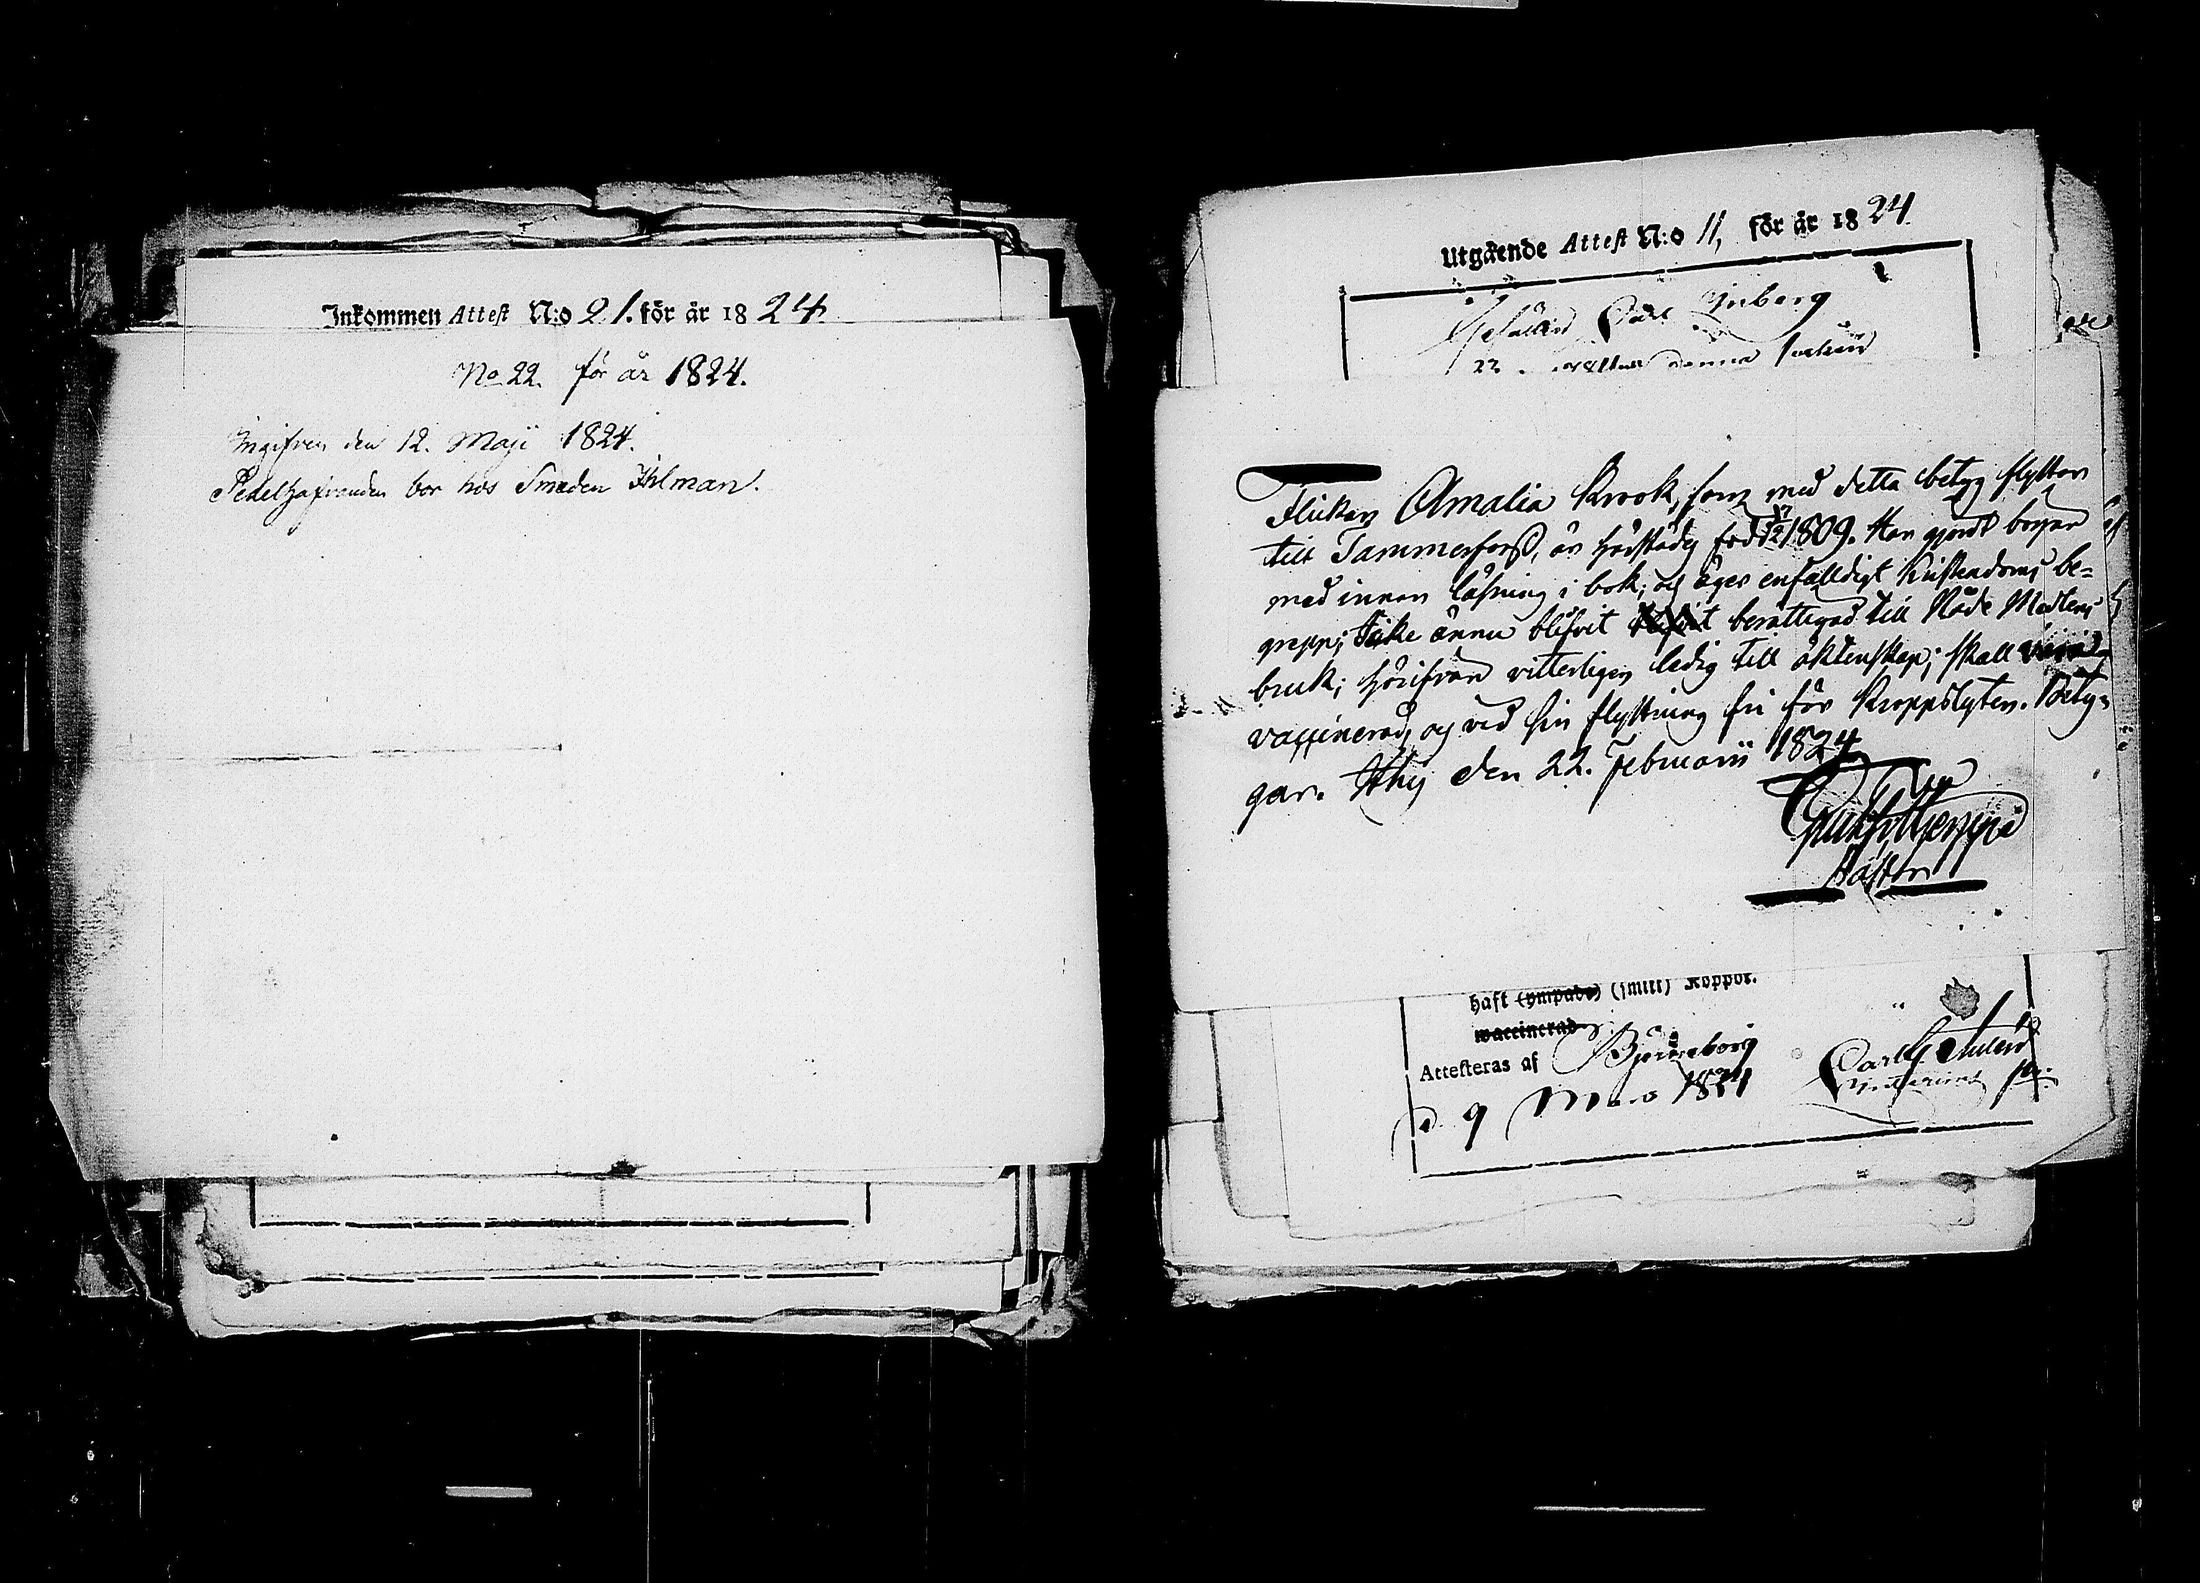 Inkommen Attest N:o 21. för år 1824.
No 22. för år 1824.
Ingifven den 12. Maji 1824.
bor hos Smeden Ihlman.
Utgående Attest N:o 11, för år 1824
Carl
denna
Flickan Amalia Krook, som med detta betyg flyttar
till Tammerforss, är härstädes född 1809. Har gjordt början
med innan läsning i bok; och äger enfalldigt Kristendoms be=
grepp; Icke ännu blifvit berättigad till Nåde Medlens
bruk; härifrån vitterligen ledig till äktenskap; skall
vaccinerad, och vid sin flyttning fri för Kroppslyten. Bety=
gar. den 22. Februarii 1824
Pastor
haft (ympade) (smitt) Koppor.
vaccinerad
Attesteras af Björneborg
d. 9 1824
Carl